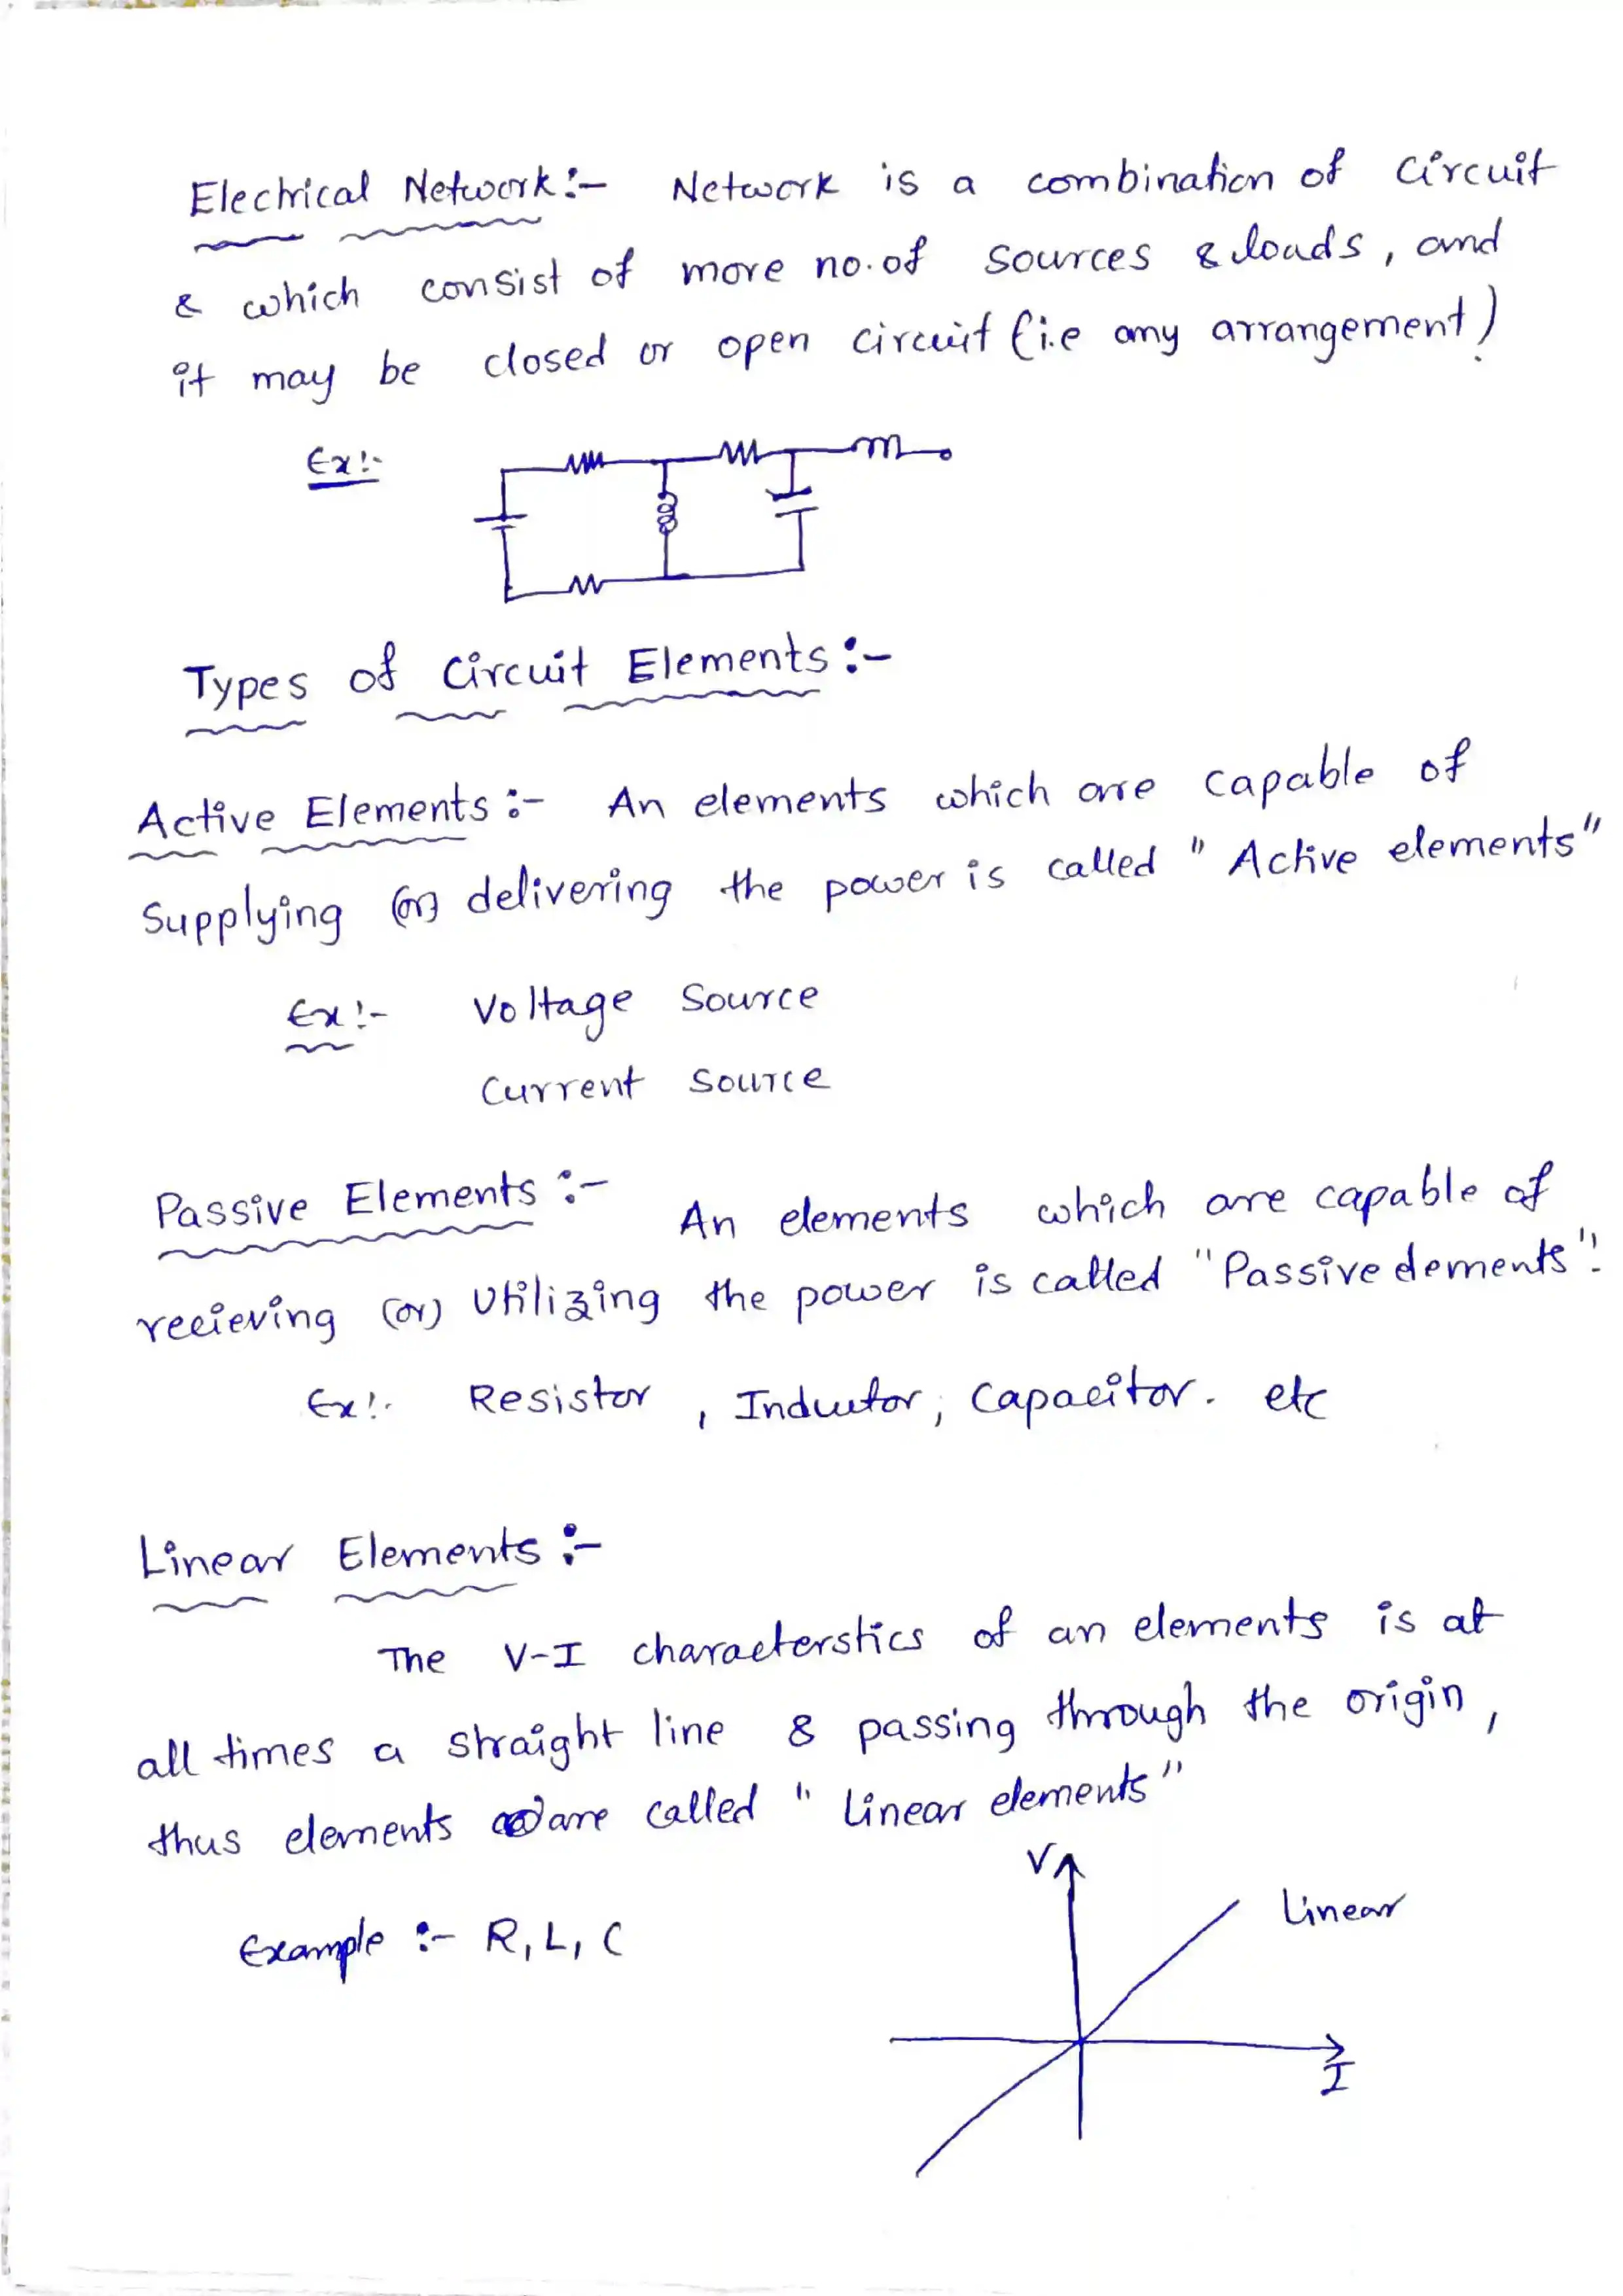 Electrical Network:- Network is a combination of circuit
& which consist of more no.of sources & loads, and
it may be closed or open circuit (i.e any arrangement)
Ex:-
Types of Circuit Elements:-
Active Elements:- An elements which are capable of
supplying (or) delivering the power is called "Active elements"
Ex:- Voltage Source
Current Source
Passive Elements:- An elements which are capable of
recieving (or) Utilizing the power is called "Passive elements".
Ex:- Resistor, Inductor, Capacitor. etc
Linear Elements:-
The V-I characterstics of an elements is at
all times a straight line & passing through the origin,
thus elements are called "Linear elements"
V
Linear
Example:- R, L, C
I